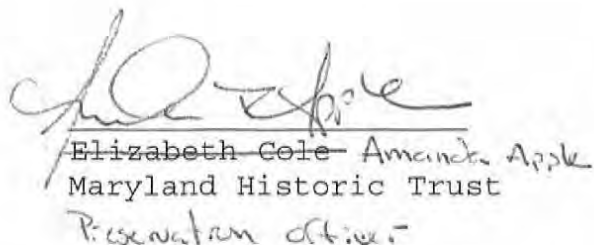 Amanda R Apple
Elizabeth Cole Amanda Apple
Maryland Historic Trust
Preservation Officer